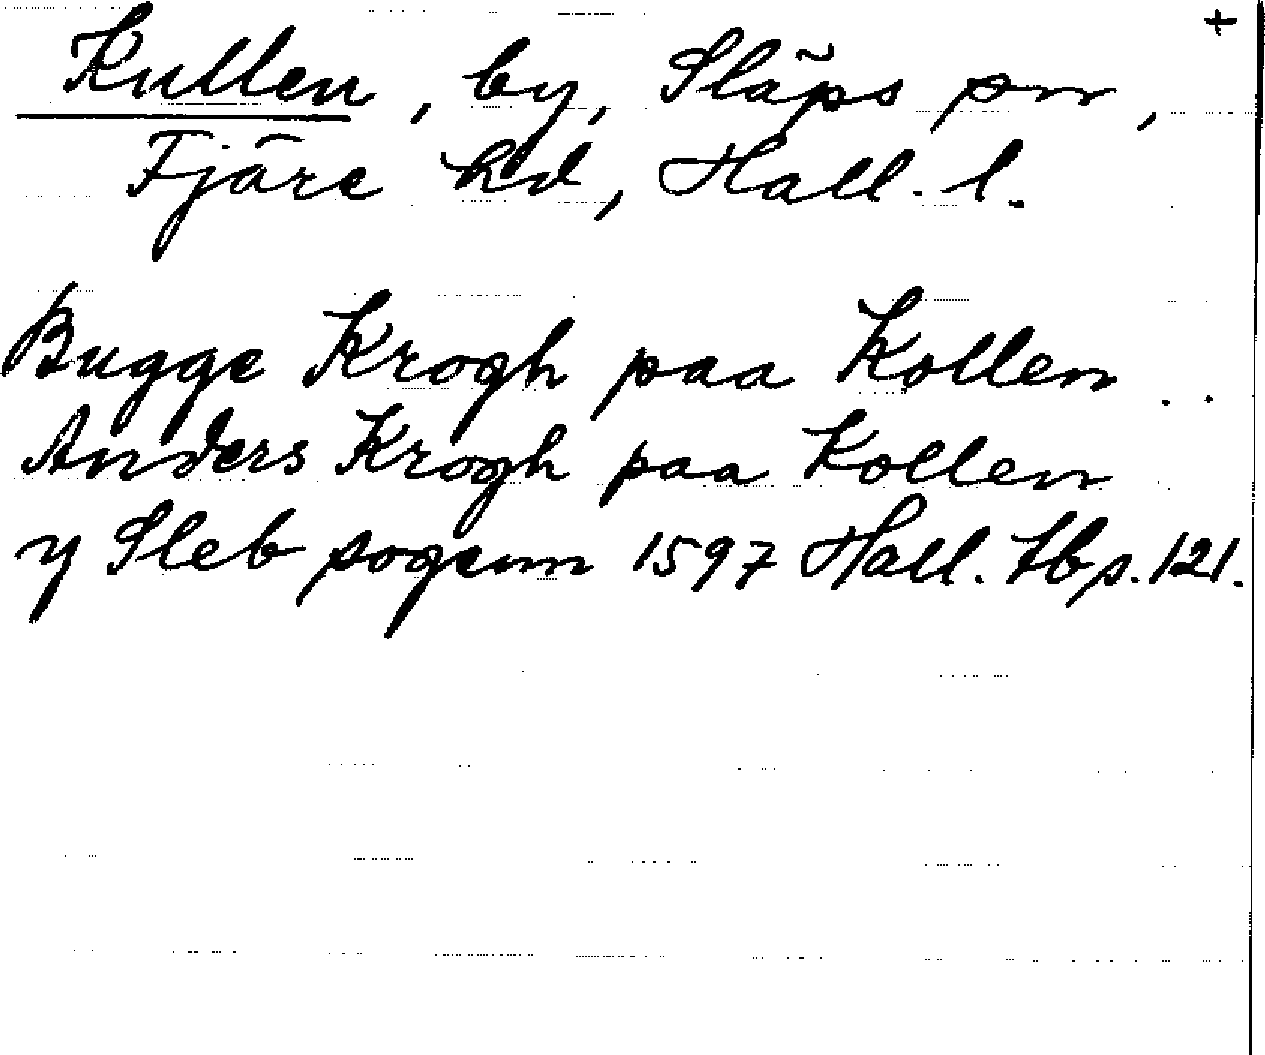 +
Kullen, by, Släps sn,
Fjäre hd, Hall. l.
Bugge Krogh paa Kollen . .
Anders Krogh paa Kollen
y Sleb sogenn 1597 Hall. tbs. 121.